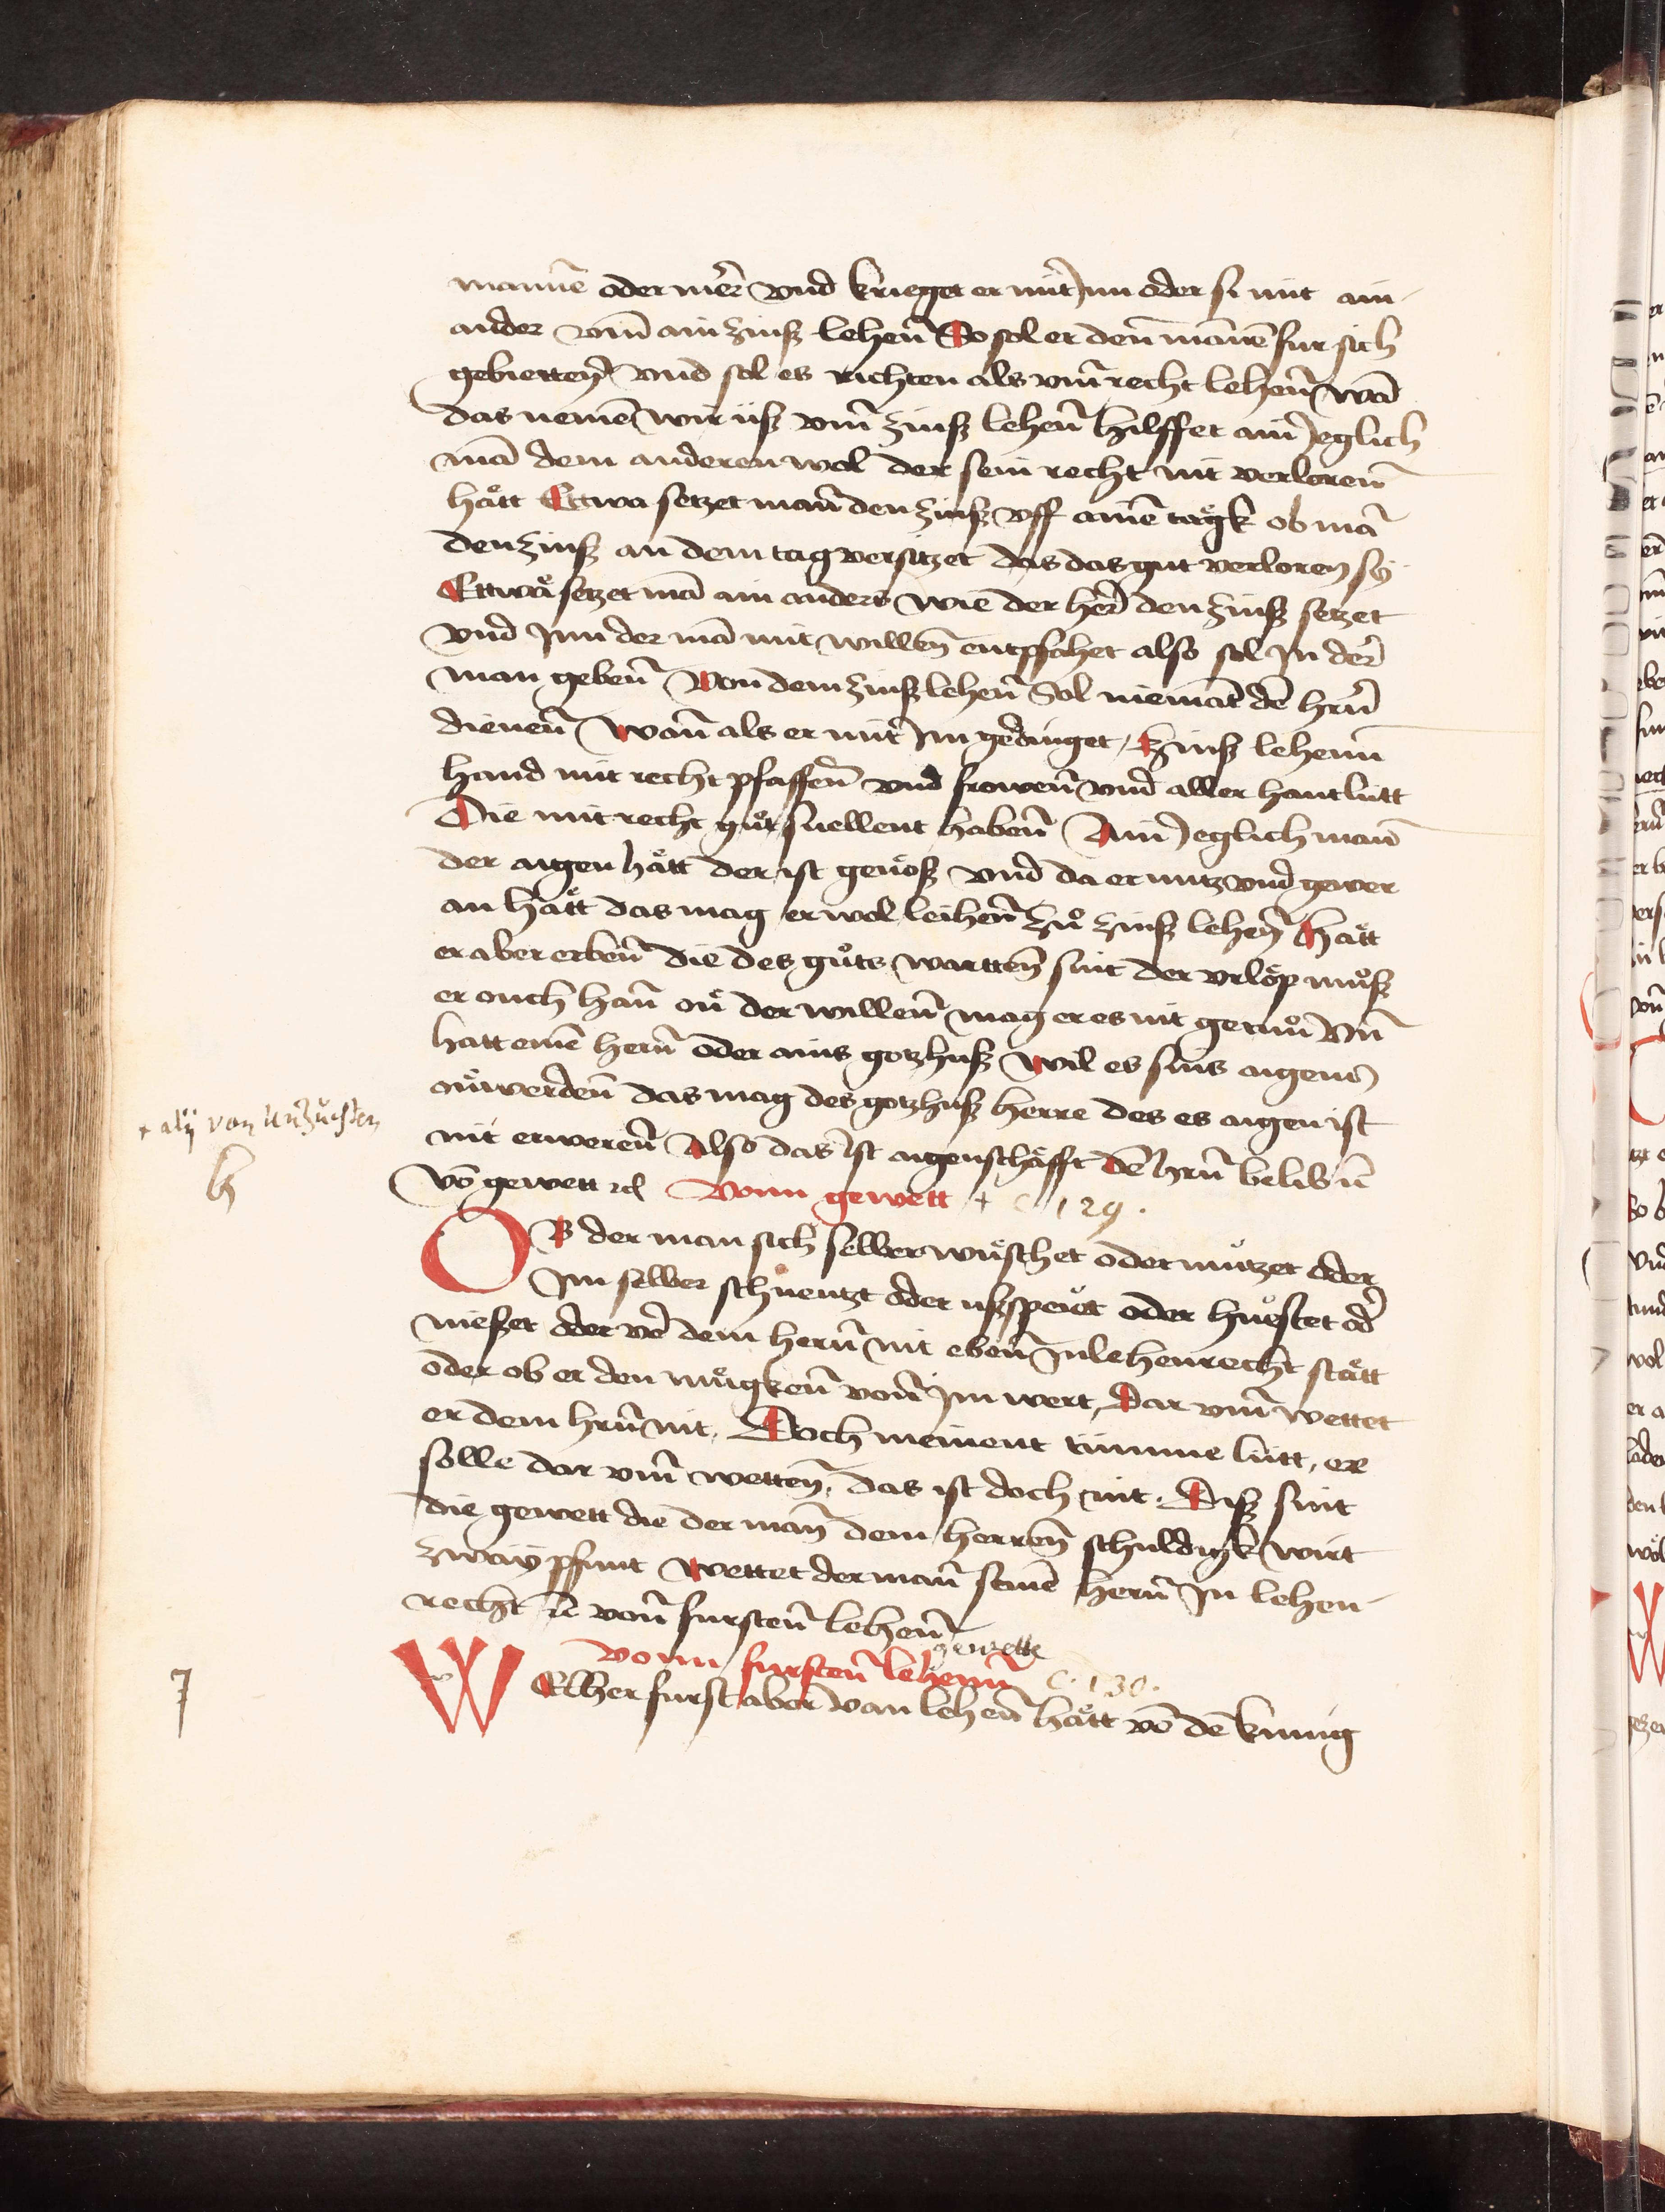 mannē oder mēr vnd krieget er mit Jm oder si mit ain-
ander vm̄ ain zinß lehen̄ So sol er den̄ mānē fur sich
gebietten̄ vnd sol es richten als vm̄ recht lehen̄ wā
das nemē wir uß vm̄ zinß lehen̄ hilffet ain Jeglich
mā dem anderen wol der sein recht nit verloren̄
hăͤtt Ettwa setzet man̄ den zinß vff ainē tagk ob mā
den zinß an dem tag versitzet das das gut verloren sy
Ettwă setzet mā ain anders wie der her̄ den zinß setzet
vnd Jnn der mā mit willen̄ entpfahet also sol Jn der
man geben̄ Von dem zinß lehen̄ Sol niemāt dē hrn̄
dienen̄ Wan̄ als er mit Jm gedinget, Zinß lehenn
hand mit recht pfaffen̄ vnd frowen̄ vnd aller hant lutt
Die mit recht guͦt suellent haben̄ Ain Jeglich man̄
der aigen hăͤtt der ist genoͤß vnd da er nutz vnd gewer
an hăͤtt das mag er wol leihen̄ zuͦ zinß lehen̄ Hăͤtt
er aber erben̄ die des guͦts wartten̄ sint der vrloͤp muͦß
er ouch han̄ on̄ der willen̄ mag er es nit getuͦn Vn̄
hatt einē hern̄ oder ains gotzhuß wil es sins aigens
on̆ werden̄ das mag des gotzhuß herre des es aigen ist
nit erweren̄ Also das ist aigenschafft dē hrn̄ belib n̄
+ alij von vnzuͤchten
h
Vō gewett rc Vonn gewett + c 129.
OB der man sich selber wuͤschet oder mutzet oder
Jm selber schneutzt oder ußspeuͦt oder hueͤstet od̄
nießet oder vō dem hern̄ nit eben̄ Jn lehenrecht stăͤtt
oder ob er den mugken̄ von̄ Jm wert, Dar vm̄ wettet
er dem hrn̄ nit. Doch meinent tumme lutt, er
solle dar vm̄ wetten̄. das ist doch nit. Diß sint
die gewett die der man̄ dem herren̄ schuldigk wirt
zwaÿ pfunt wettet der man̄ seinē hern̄ Jn lehen-
recht rc von̄ fursten̄ lehen̄
gewette
vonn fursten̄ lehenn c. 130.
7
WElher furst aber van lehen̄ hăͤtt vō dē kunig